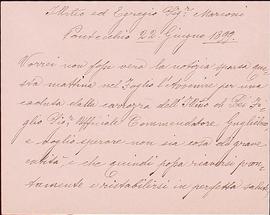 Illstrio ed Egregio Sigr. Marconi
Pontecchio 22 Giugno 1899.
Vorrei non fosse vera la notizia sparsa questa
mattina nel foglio l'Avvenire per una
caduta dalla carrozza dell'
Uffiziale Commendatore Guglielmo
e voglio sperare non sia cosa di grave
entità e che quindi possa riaversi pron-
tamente e ristabilirsi in perfetta salute